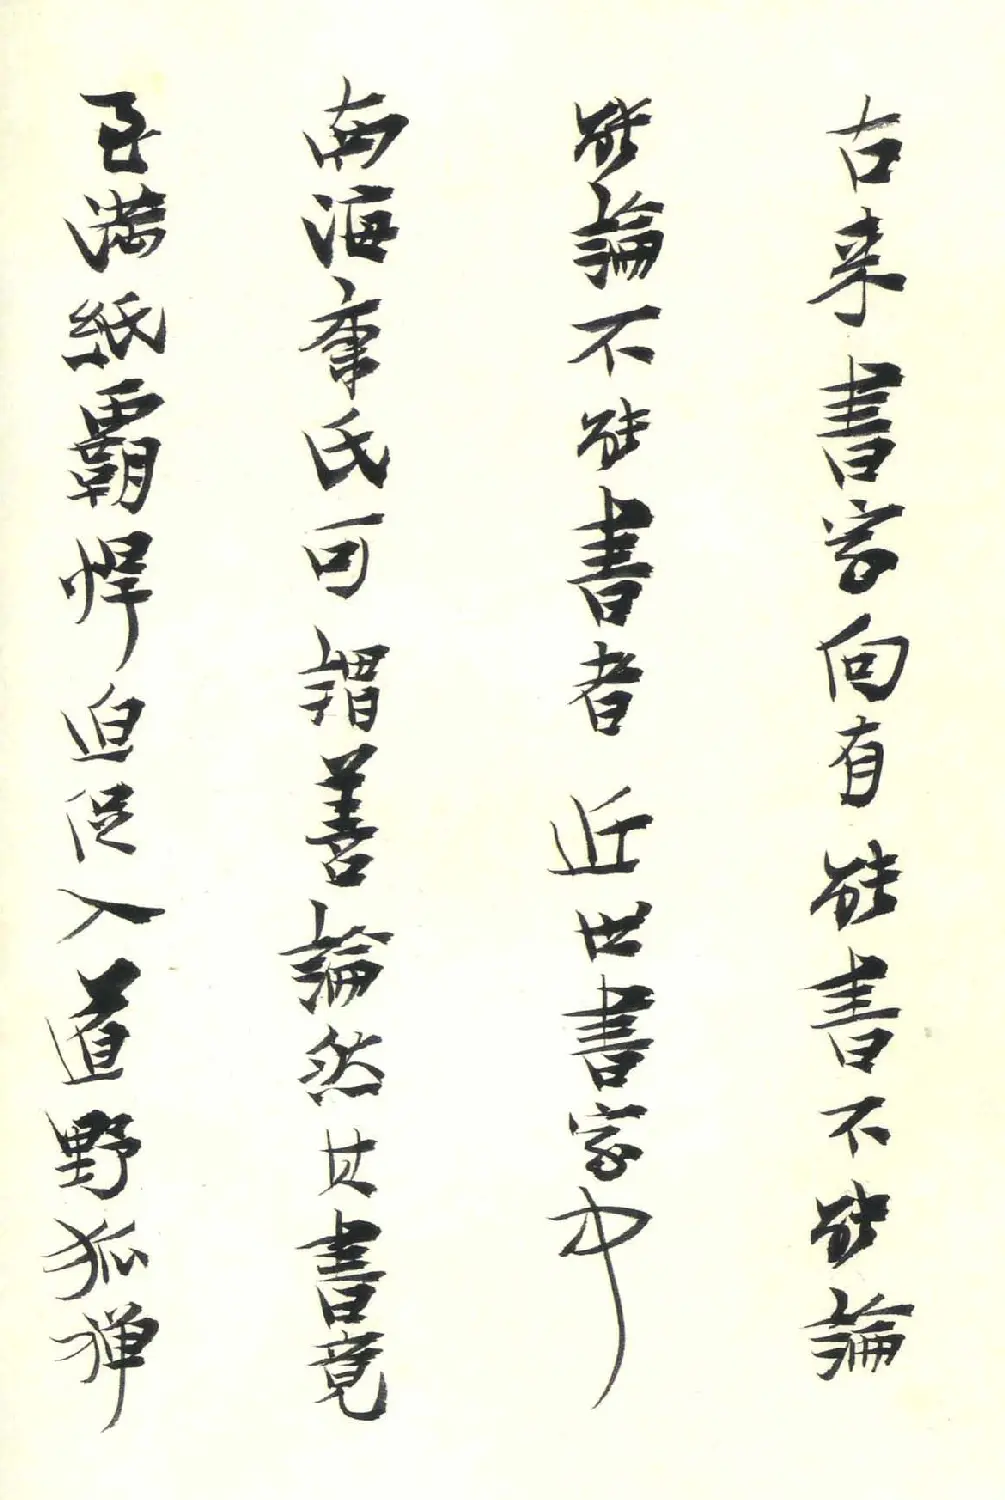 古来書家向有能書不能論
能論不能書者近世書家中
南海康氏可謂善論然其書竟
至滿紙霸悍迫促入道野狐禅